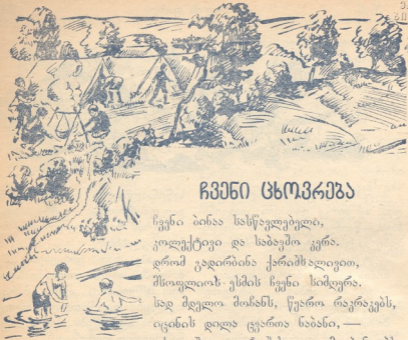 ჩვენი ცხოვრება
ჩვენი ბინაა სასწავლებელი,
კოლექტივი და საბავშო კერა.
დრომ გადირბინა ქარიშხალივით,
მსოფლიოს ესმის ჩვენი სიმღერა.
სად მდელო მოჩანს, წყარო რაკრაკებს,
იცინის დილა ცვართა ნაბანი, —